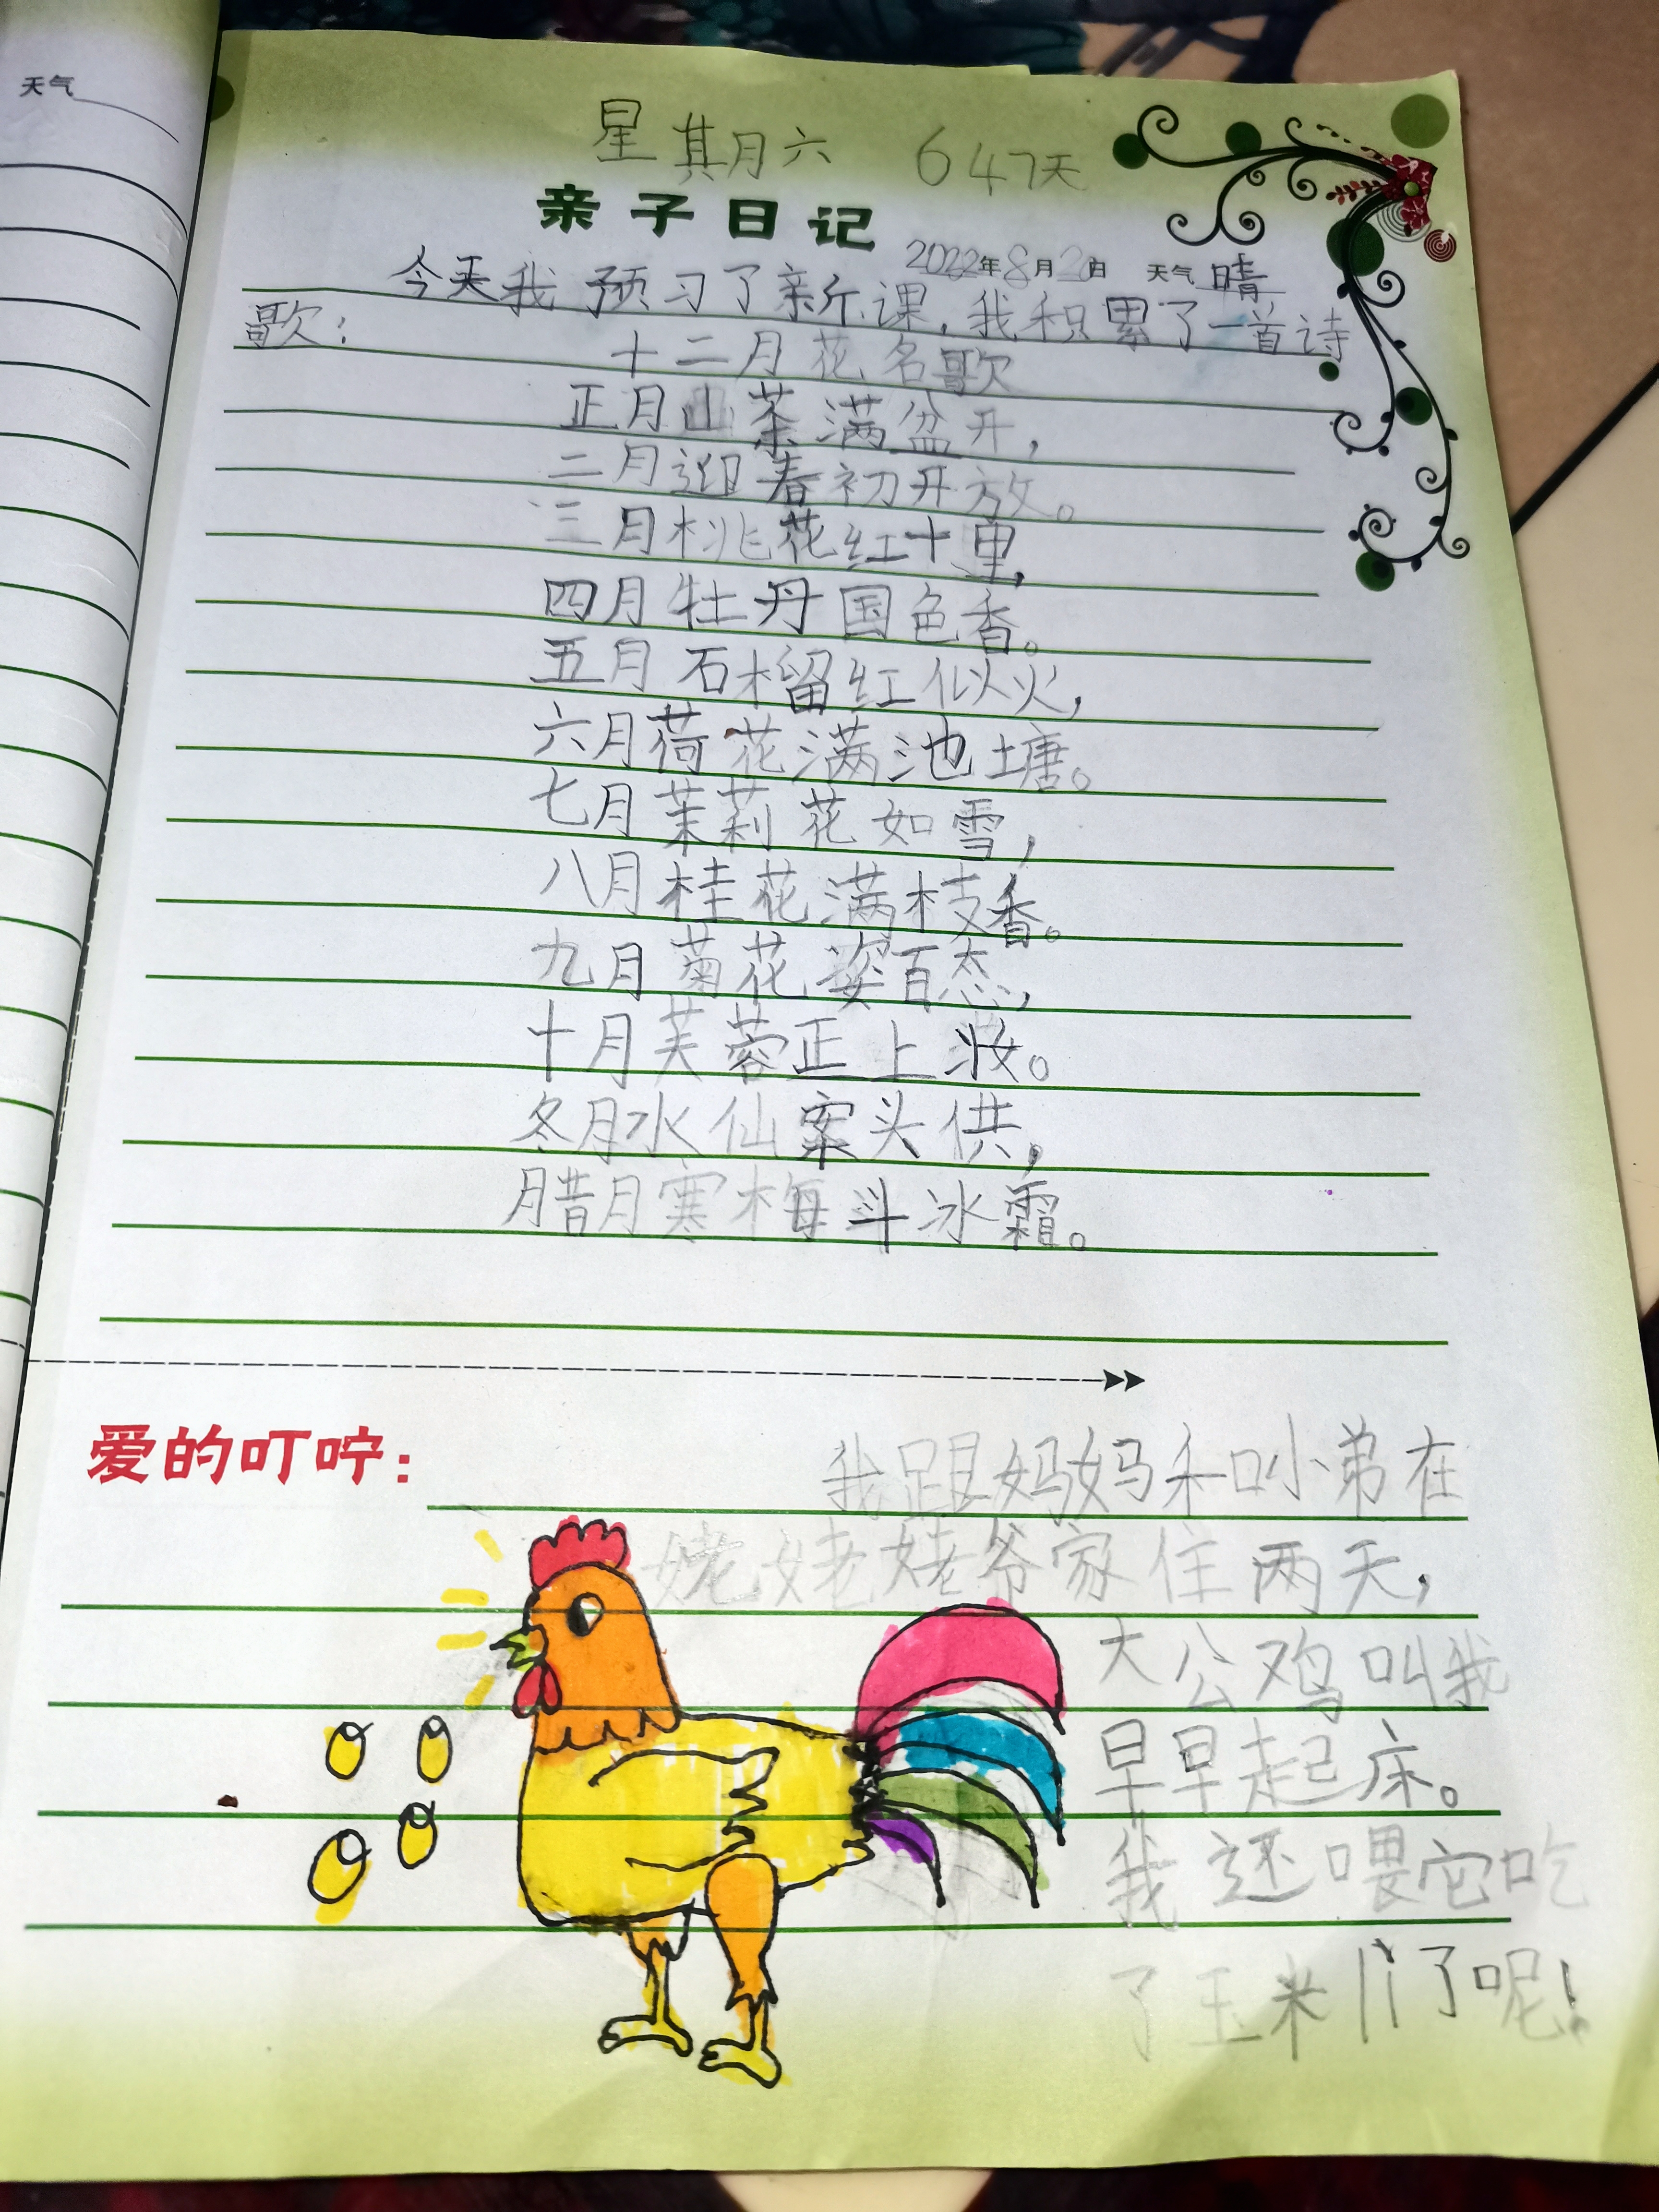 天气
星期六 647天
亲子日记
2022年8月20日 天气 晴
今天我预习了新课,我积累了一首诗
歌:
十二月花名歌
正月山茶满盆开,
二月迎春初开放。
三月桃花红十里,
四月牡丹国色香。
五月石榴红似火,
六月荷花满池塘。
七月茉莉花如雪,
八月桂花满枝香。
九月菊花姿百态,
十月芙蓉正上妆。
冬月水仙案头供,
腊月寒梅斗冰霜。
爱的叮咛:
我跟妈妈和小弟在
姥姥姥爷家住两天,
大公鸡叫我
早早起床。
我还喂它吃
了玉米
了呢!